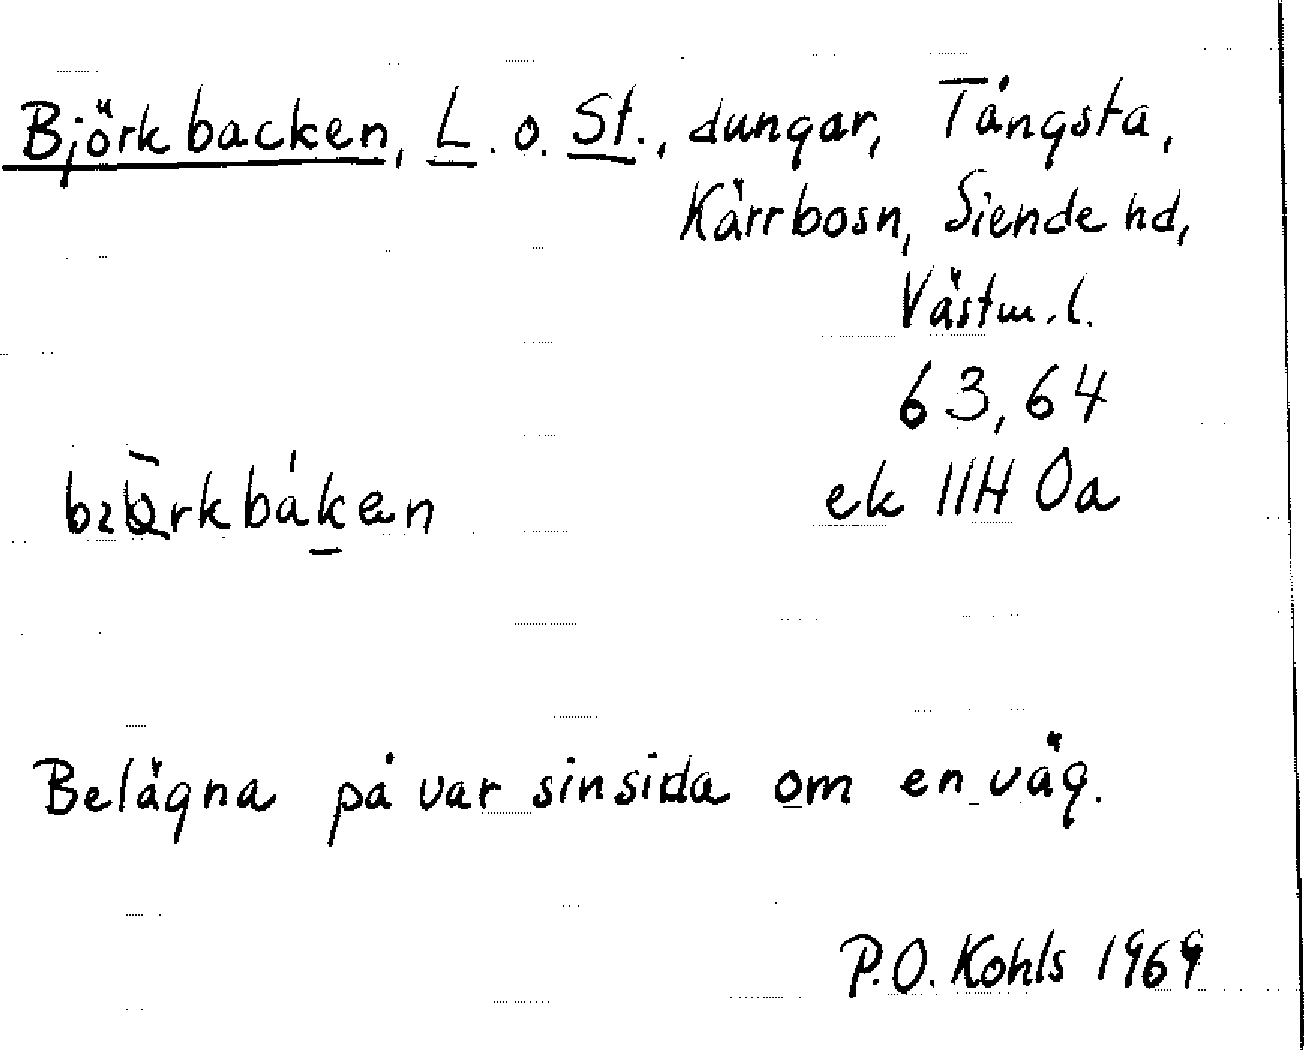 Björkbacken, L. o. St., dungar, Tångsta,
Kärrbosn, Siende hd,
Västm. l.
63, 64
ek 11H 0a
Belägna på var sin sida om en väg.
P.O. Kohls 1969